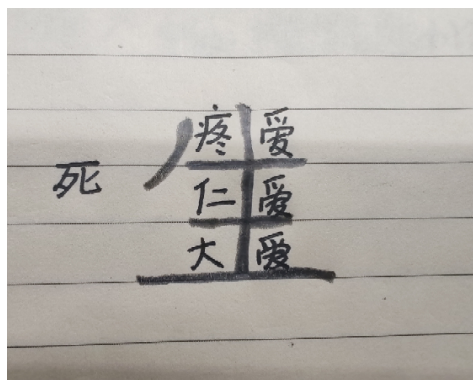 死 生
疼 爱
仁 爱
大 爱